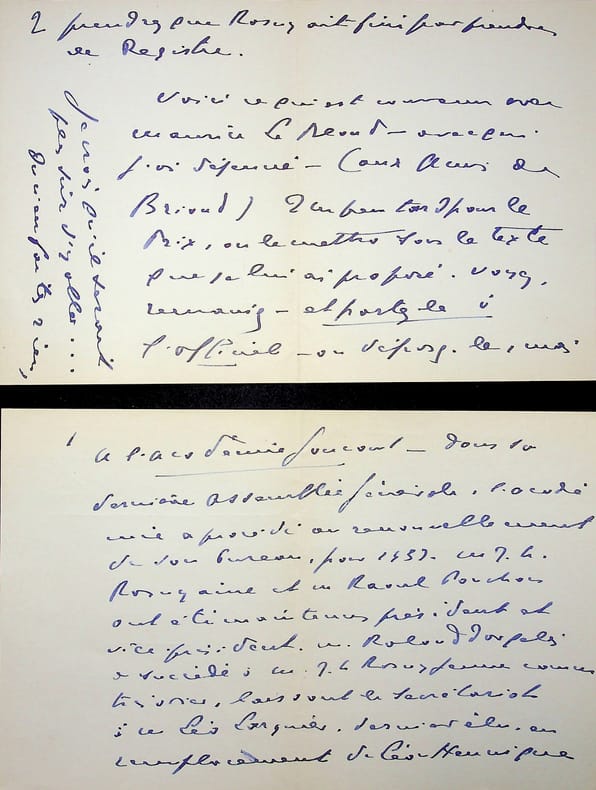 2 prendre, que Rosny ait fini par prendre
ce Registre.
Voici ce qui est convenu avec
Maurice Le Blond — avec qui
j'ai déjeuné — (aux Amis de
Briand) Un peu tard pour le
Prix, ou le mettre sous le texte
que je lui ai proposé. Voyez,
remaniez — et portez-le à
l'officiel — ou déposez-le, moi
Je crois qu'il serait
peu sûr d'y aller ...
rien,
1 A l'Académie Goncourt — Dans sa
dernière Assemblée générale, l'acadé
mie a procédé au renouvellement
de son bureau, pour 1937. MM J. H.
Rosny aîné et M Raoul Ponchon
ont été maintenus président et
vice-président. M. Roland Dorgelès
a succédé à M. J. H Rosny jeune comme
trésorier, laissant le secrétariat
à M Léo Larguier, dernier élu, en
remplacement de Léon Hennique